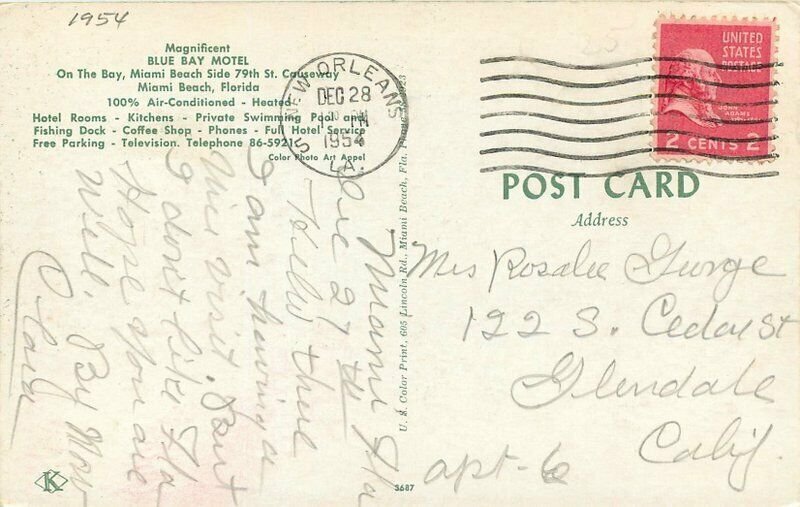 1954
Magnificent
BLUE BAY MOTEL
On The Bay, Miami Beach Side 79th St. Causeway
Miami Beach, Florida
100% Air-Conditioned - Heated
Hotel Rooms - Kitchens - Private Swimming Pool and
Fishing Dock - Coffee Shop - Phones - Full Hotel Service
Free Parking - Television. Telephone 86-5921
Color Photo Art Appel
NEW ORLEANS
DEC 28
PM
1954
LA.
5
UNITED
STATES
POSTAGE
JOHN
ADAMS
2 CENTS 2
POST CARD
Address
Mrs Rosalie George
122 S. Cedar St
Glendale
Calif.
apt-6
Miami Fla
Dec 27 th
Hello there
I am having a
nice visit. But
I don't like Fla
Hope you are
well. By Now
Clara
U. S. Color Print, 605 Lincoln Rd., Miami Beach, Fla.
K
3687